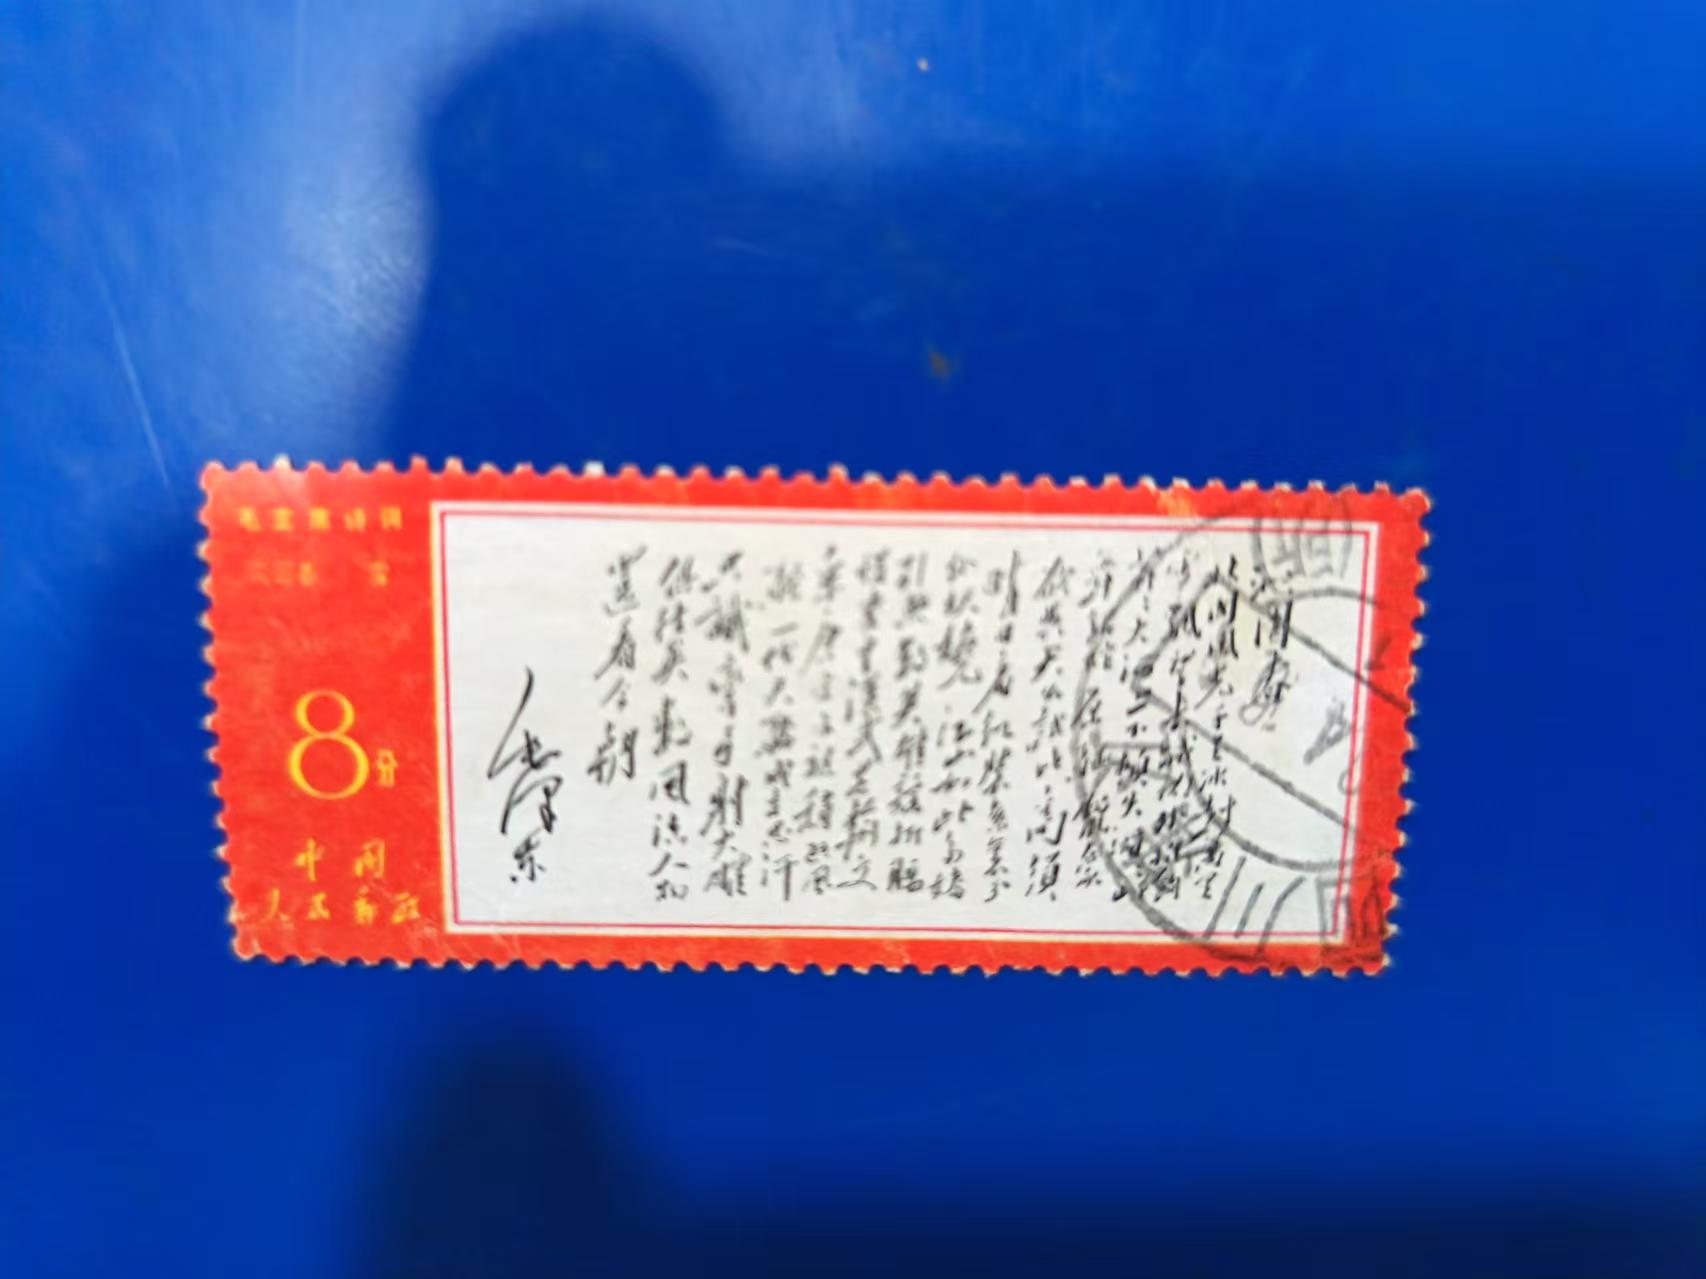 毛主席诗词
8分
中国
人民邮政
沁园春
北国风光千里冰封万里
雪飘望长城内外惟馀莽
莽大河上下顿失滔滔山
舞银蛇原驰腊象欲
与天公试比高须
晴日看红装素裹
分外妖娆江山如此多娇
引无数英雄竞折腰
惜秦皇汉武略输文
采唐宗宋祖稍逊风
骚一代天骄成吉思汗
只识弯弓射大雕
俱往矣数风流人物
还看今朝
毛泽东